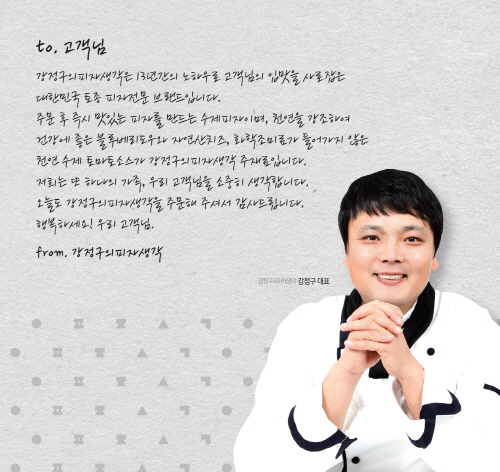 to. 고객님
강정구의피자생각은 13년간의 노하우로 고객님의 입맛을 사로잡은
대한민국 토종 피자전문 브랜드입니다.
주문 후 즉시 맛있는 피자를 만드는 수제피자이며, 천연을 강조하여
건강에 좋은 블루베리도우와 자연산치즈, 화학조미료가 들어가지 않은
천연 수제 토마토소스가 강정구의피자생각 주재료입니다.
저희는 또 하나의 가족, 우리 고객님을 소중히 생각합니다.
오늘도 강정구의피자생각을 주문해 주셔서 감사드립니다.
행복하세요! 우리 고객님.
from. 강정구의피자생각
강정구의피자생각 강정구 대표